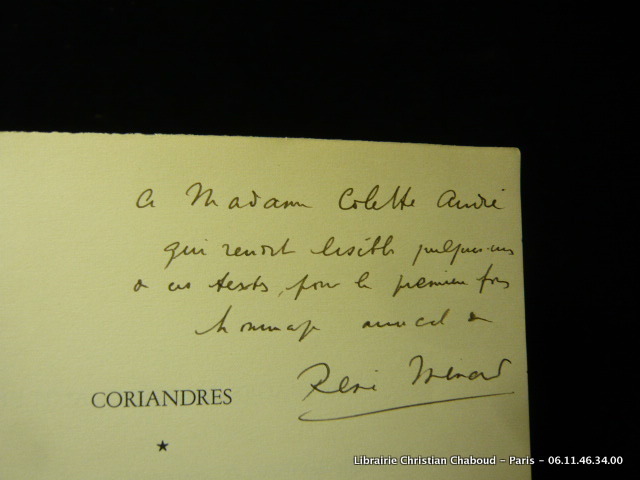 A Madame Colette André
qui rendit lisible quelques-uns
de ces textes, pour la première fois
hommage amical de
René Ménard
CORIANDRES
★
Librairie Christian Chaboud - Paris - 06.11.46.34.00